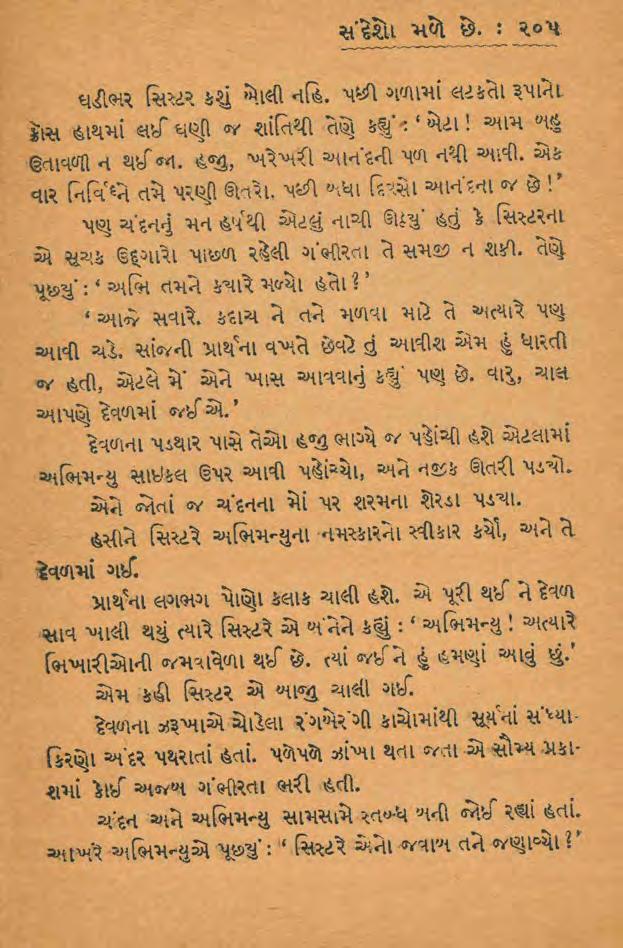 સંદેશો મળે છે. : ૨૦૫
ઘડીભર સિસ્ટર કશું બોલી નહિ. પછી ગળામાં લટકતો રૂપાનો
ક્રોસ હાથમાં લઈ ઘણી જ શાંતિથી તેણે કહ્યું : ‘બેટા! આમ બહુ
ઉતાવળી ન થઈ જા. હજી, ખરેખરી આનંદની પળ નથી આવી. એક
વાર નિર્વિઘ્ને તમે પરણી ઊતરો. પછી બધા દિવસો આનંદના જ છે!’
પણ ચંદનનું મન હર્ષથી એટલું નાચી ઊઠ્યું હતું કે સિસ્ટરના
એ સૂચક ઉદ્દગારો પાછળ રહેલી ગંભીરતા તે સમજી ન શકી. તેણે
પૂછ્યું : ‘અભિ તમને ક્યારે મળ્યો હતો?’
‘આજે સવારે. કદાચ ને તને મળવા માટે તે અત્યારે પણ
આવી ચડે. સાંજની પ્રાર્થના વખતે છેવટે તું આવીશ એમ હું ધારતી
જ હતી, એટલે મેં એને ખાસ આવવાનું કહ્યું પણ છે. વારુ, ચાલ
આપણે દેવળમાં જઈએ.’
દેવળના પડથાર પાસે તેઓ હજી ભાગ્યે જ પહોંચી હશે એટલામાં
અભિમન્યુ સાઇકલ ઉપર આવી પહોંચ્યો, અને નજીક ઊતરી પડ્યો.
એને જોતાં જ ચંદનના મોં પર શરમના શેરડા પડ્યા.
હસીને સિસ્ટરે અભિમન્યુના નમસ્કારનો સ્વીકાર કર્યો, અને તે
દેવળમાં ગઈ.
પ્રાર્થના લગભગ પોણો કલાક ચાલી હશે. એ પૂરી થઈ ને દેવળ
સાવ ખાલી થયું ત્યારે સિસ્ટરે એ બંનેને કહ્યું : ‘અભિમન્યુ! અત્યારે
ભિખારીઓની જમવાવેળા થઈ છે. ત્યાં જઈને હું હમણાં આવું છું.’
એમ કહી સિસ્ટર એ બાજુ ચાલી ગઈ.
દેવળના ઝરૂખાએ ચોડેલા રંગબેરંગી કાચોમાંથી સૂર્યનાં સંધ્યા-
કિરણો અંદર પથરાતાં હતાં. પળેપળે ઝાંખા થતા જતા એ સૌમ્ય પ્રકા-
શમાં કોઈ અજબ ગંભીરતા ભરી હતી.
ચંદન અને અભિમન્યુ સામસામે સ્તબ્ધ બની જોઈ રહ્યાં હતાં.
આખરે અભિમન્યુએ પૂછ્યું : “સિસ્ટરે એનો જવાબ તને જણાવ્યો?’